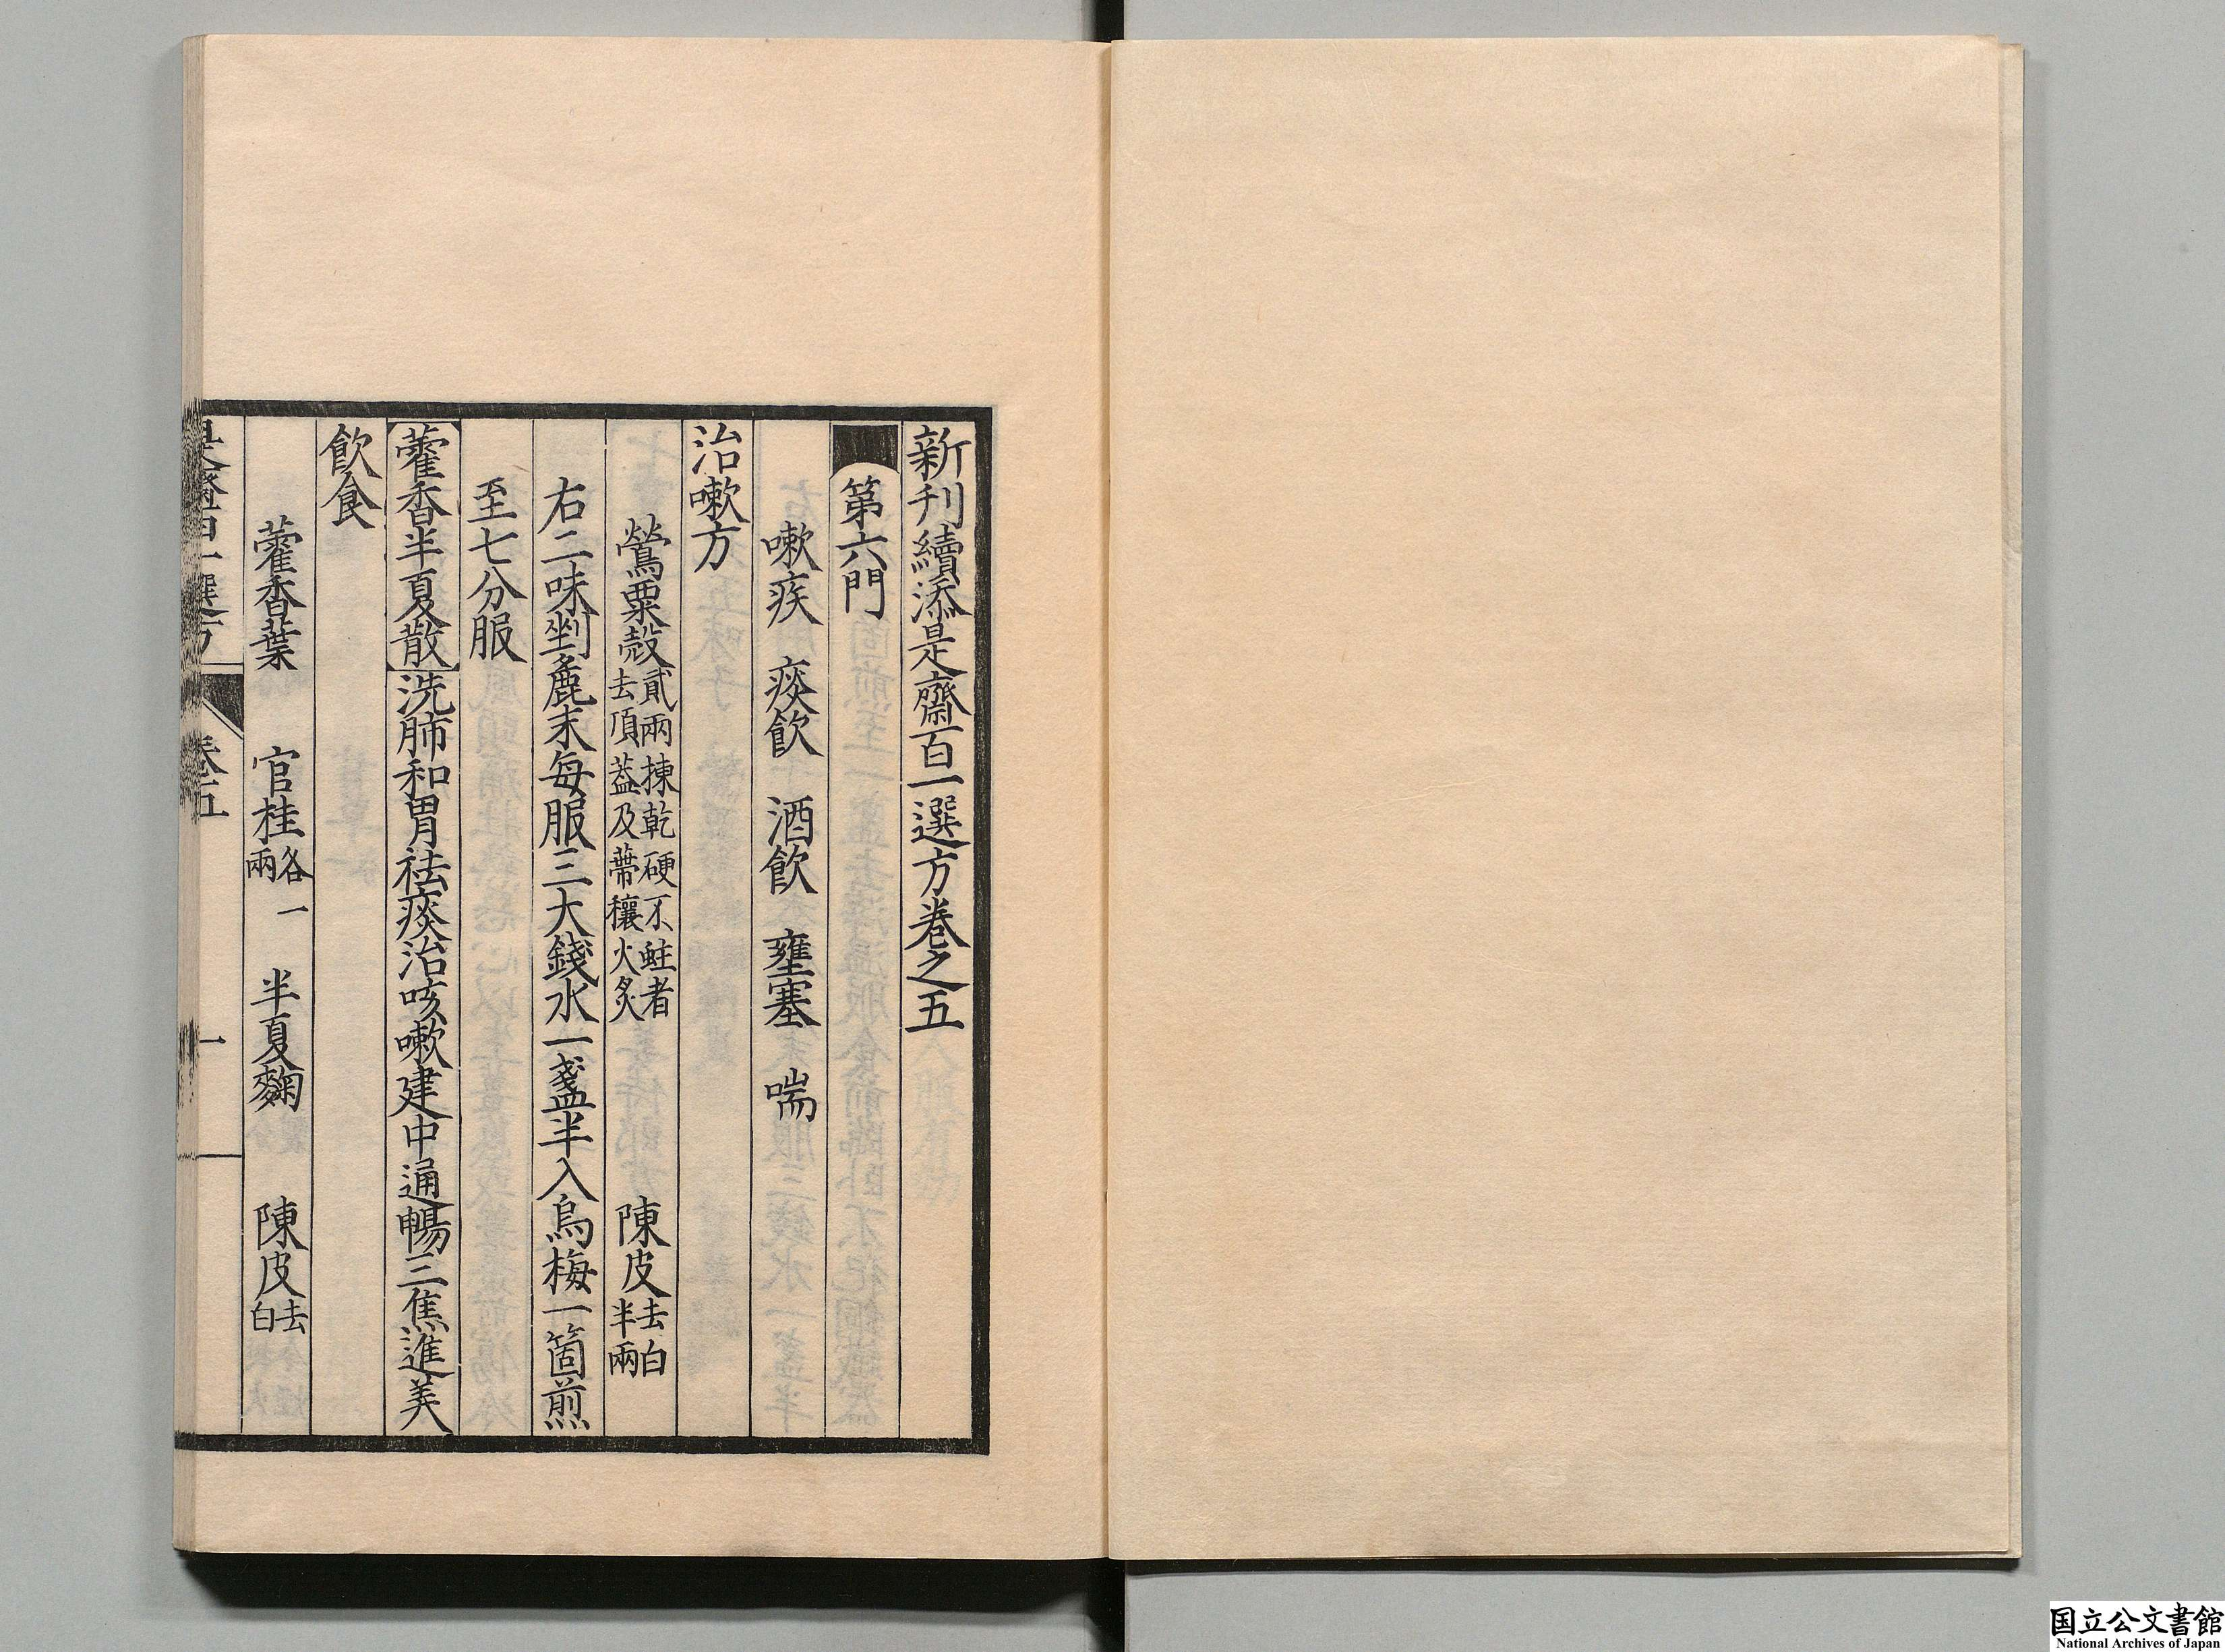 新刊續添是齋百一選方卷之五
第六門
嗽疾　痰飲　酒飲　壅塞　喘
治嗽方
鶯粟殼貳兩揀乾硬不蛀者去頂蓋及蔕穰火炙　陳皮去白半兩
右二味剉麁末每服三大錢水一盞半入烏梅一箇煎
至七分服
藿香半夏散洗肺和胃祛痰治咳嗽建中通暢三焦進美
飲食
藿香葉　官桂各一兩　半夏麴　陳皮去白
是齋百一選方　卷五　一
国立公文書館
National Archives of Japan